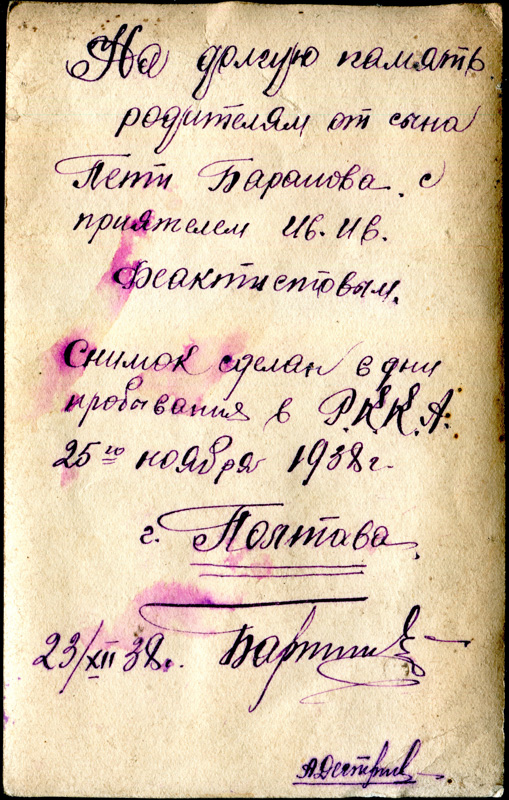 На долгую память
родителям от сына
Пети Баранова с
приятелем Ив. Ив.
Феактистовым.
Снимок сделан в дни
пробывания в Р.К.К.А.
25го ноября 1938 г.
г. Полтава.
23/XII 38 г.